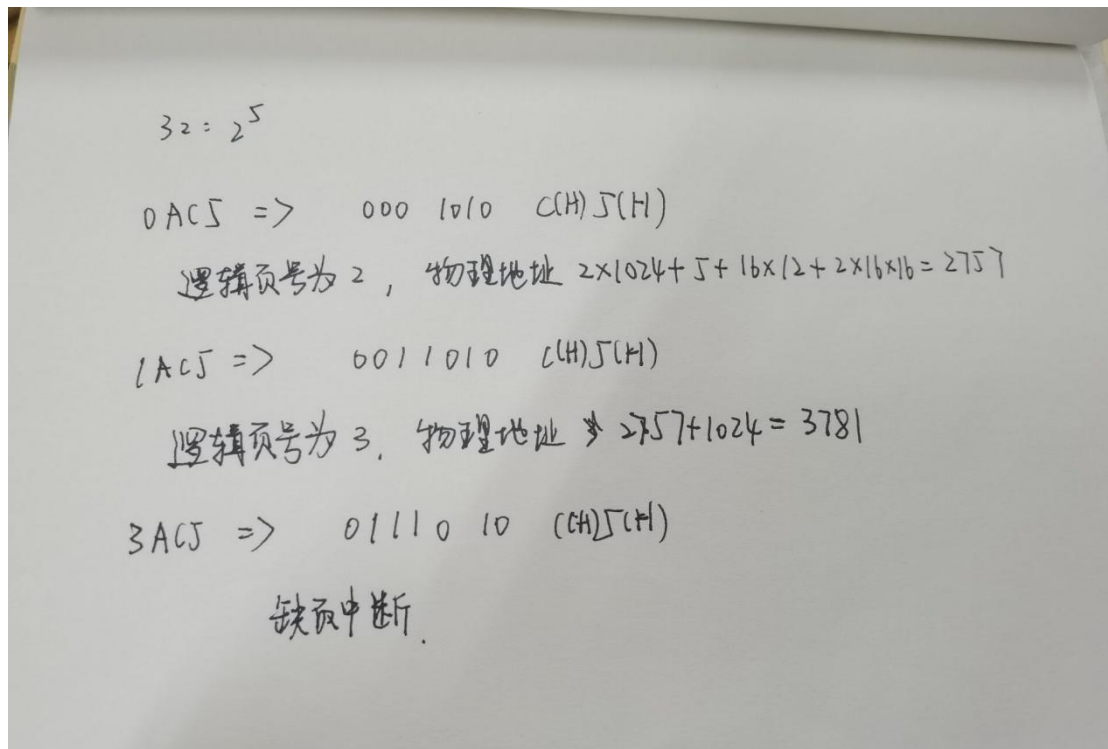 32 = 2^5
0AC5 => 000 1010 C(H) 5(H)
逻辑页号为 2, 物理地址 2×1024+5+16×12+2×16×16=2757
1AC5 => 0011010 C(H)5(H)
逻辑页号为 3. 物理地址 2757+1024=3781
3AC5 => 0111010 C(H)5(H)
缺页中断.